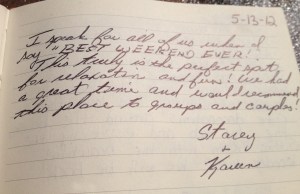 5-13-12
I speak for all of us when I
say "BEST WEEKEND EVER!"
This truly is the perfect spot
for relaxation and fun! We had
a great time and would recommend
this place to groups and couples!
Stacey
+
Karen